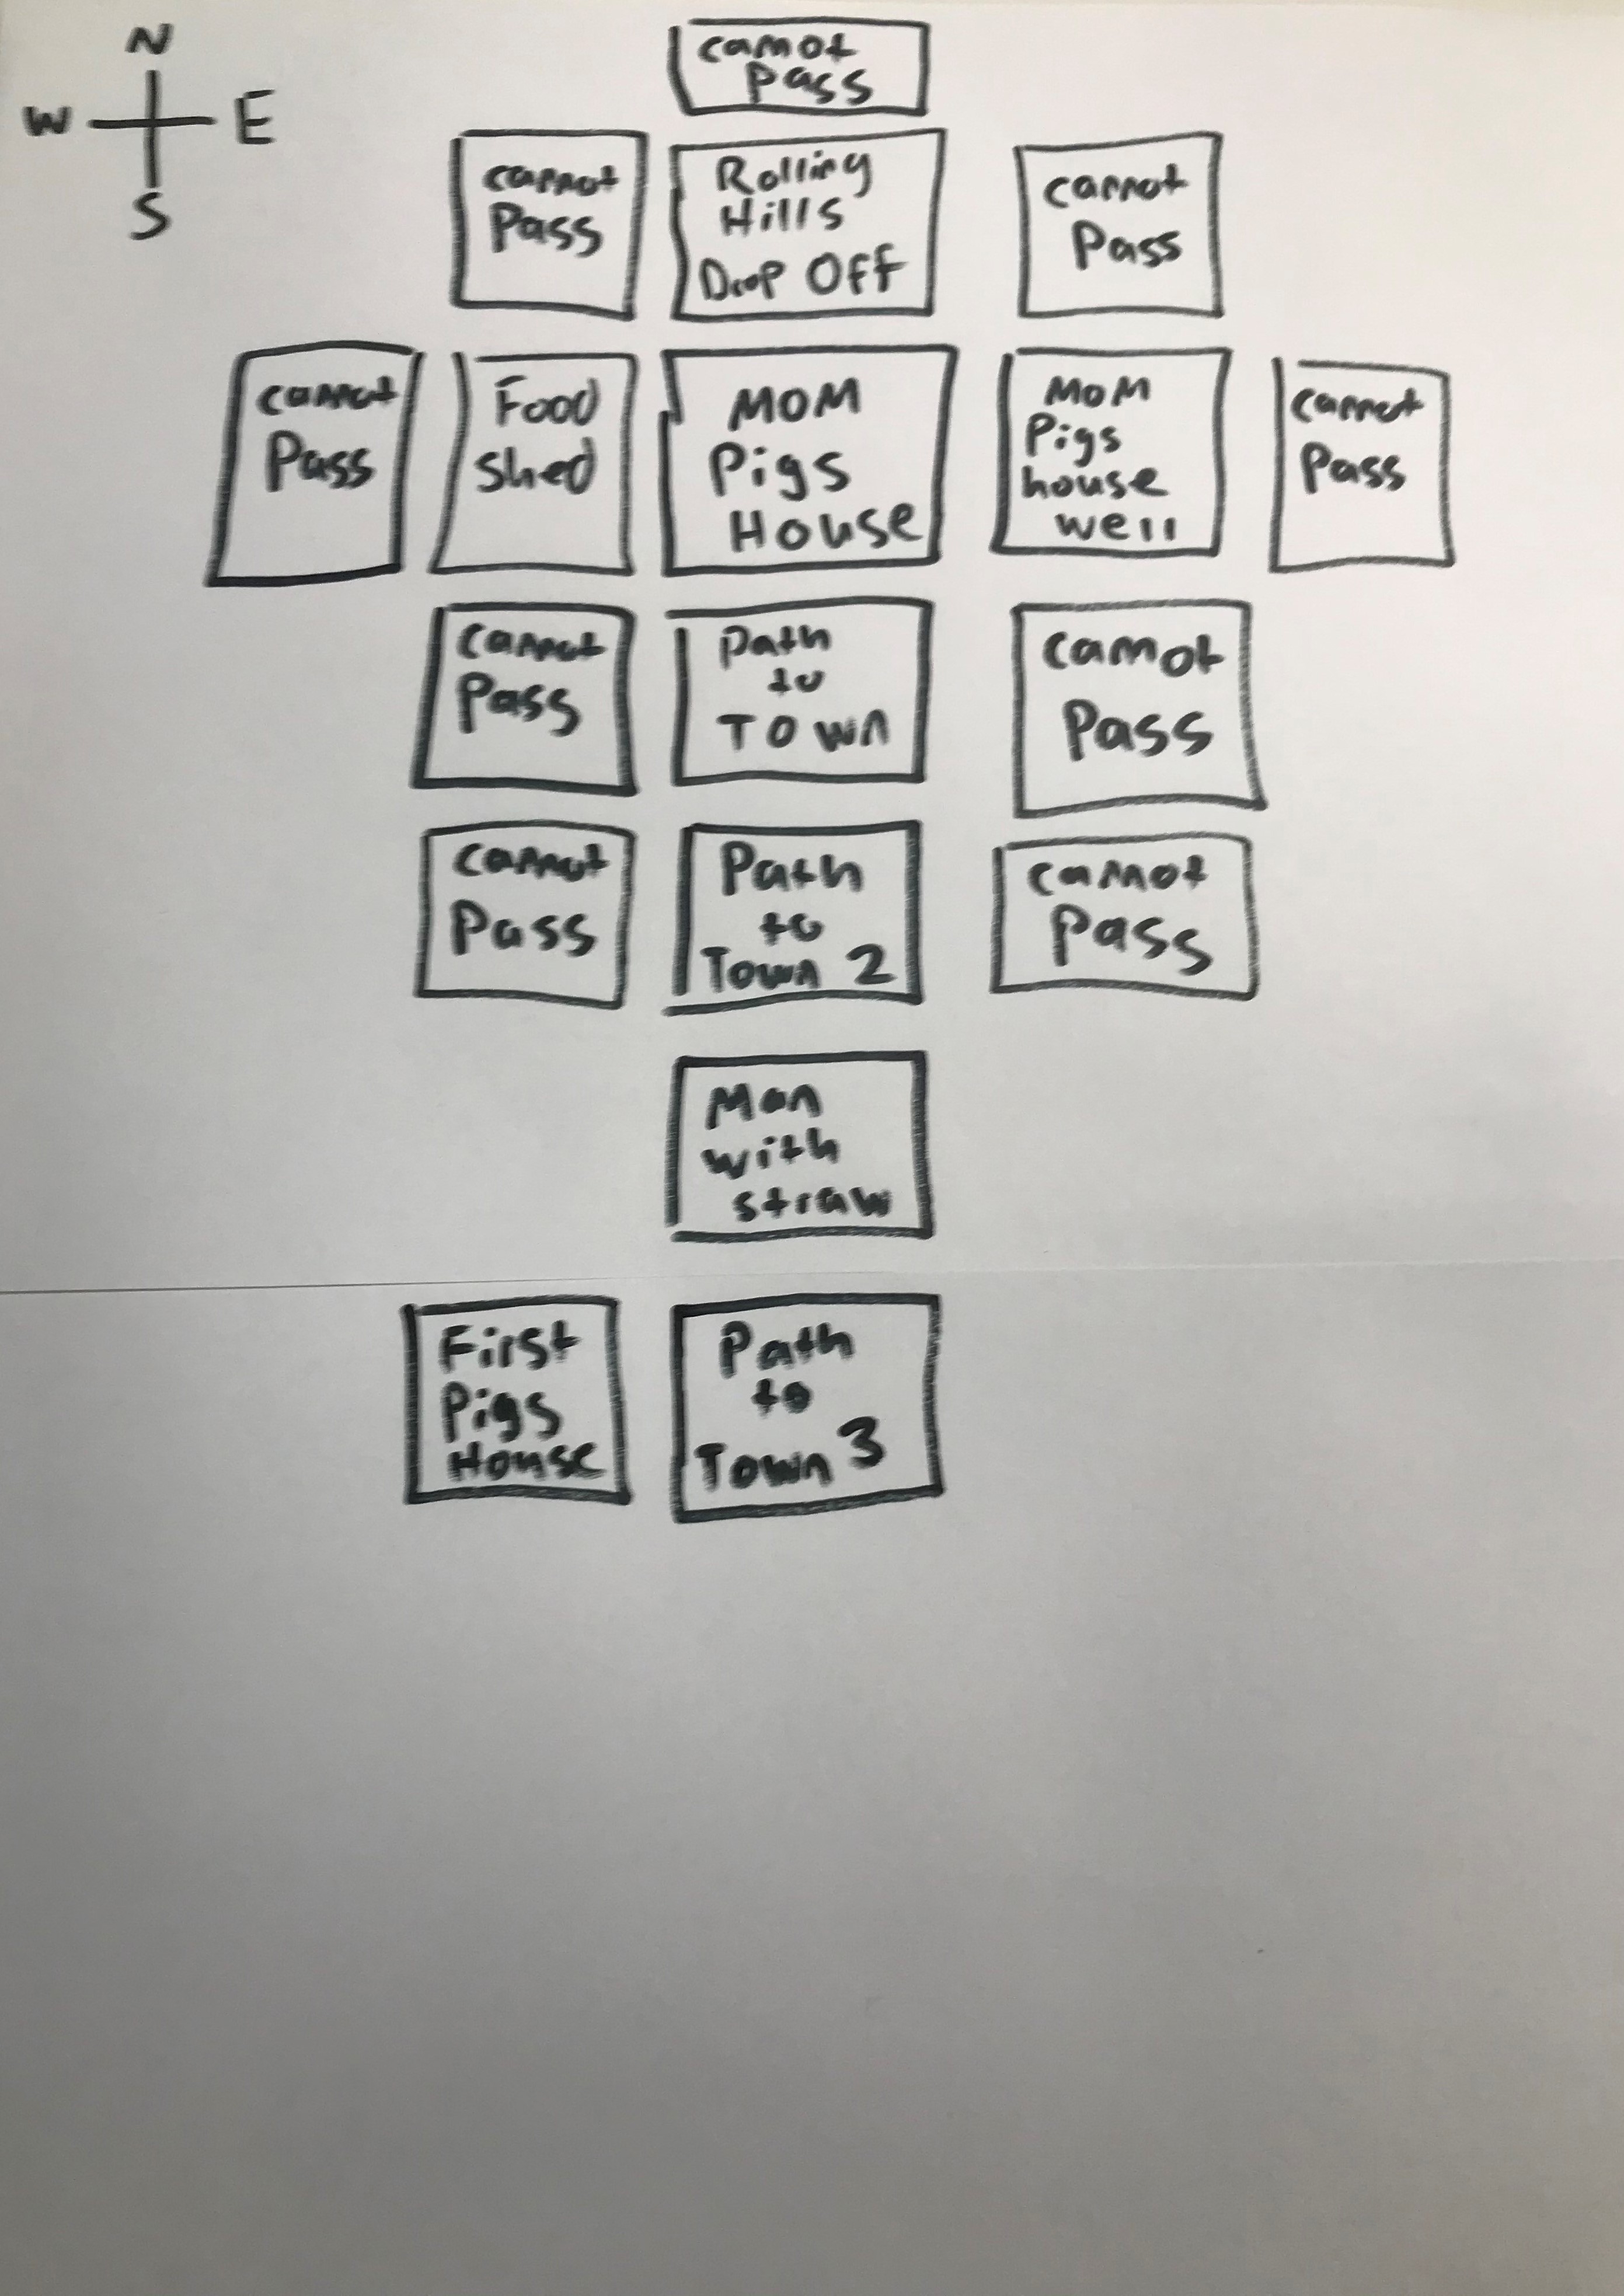 N
W E
S
cannot
Pass
cannot
Pass
Rolling
Hills
Drop Off
cannot
Pass
cannot
Pass
Food
shed
MOM
Pigs
House
MOM
Pigs
house
well
cannot
Pass
cannot
Pass
Path
to
TOWN
cannot
Pass
cannot
Pass
Path
to
Town 2
cannot
Pass
Man
with
straw
First
Pigs
House
Path
to
Town 3